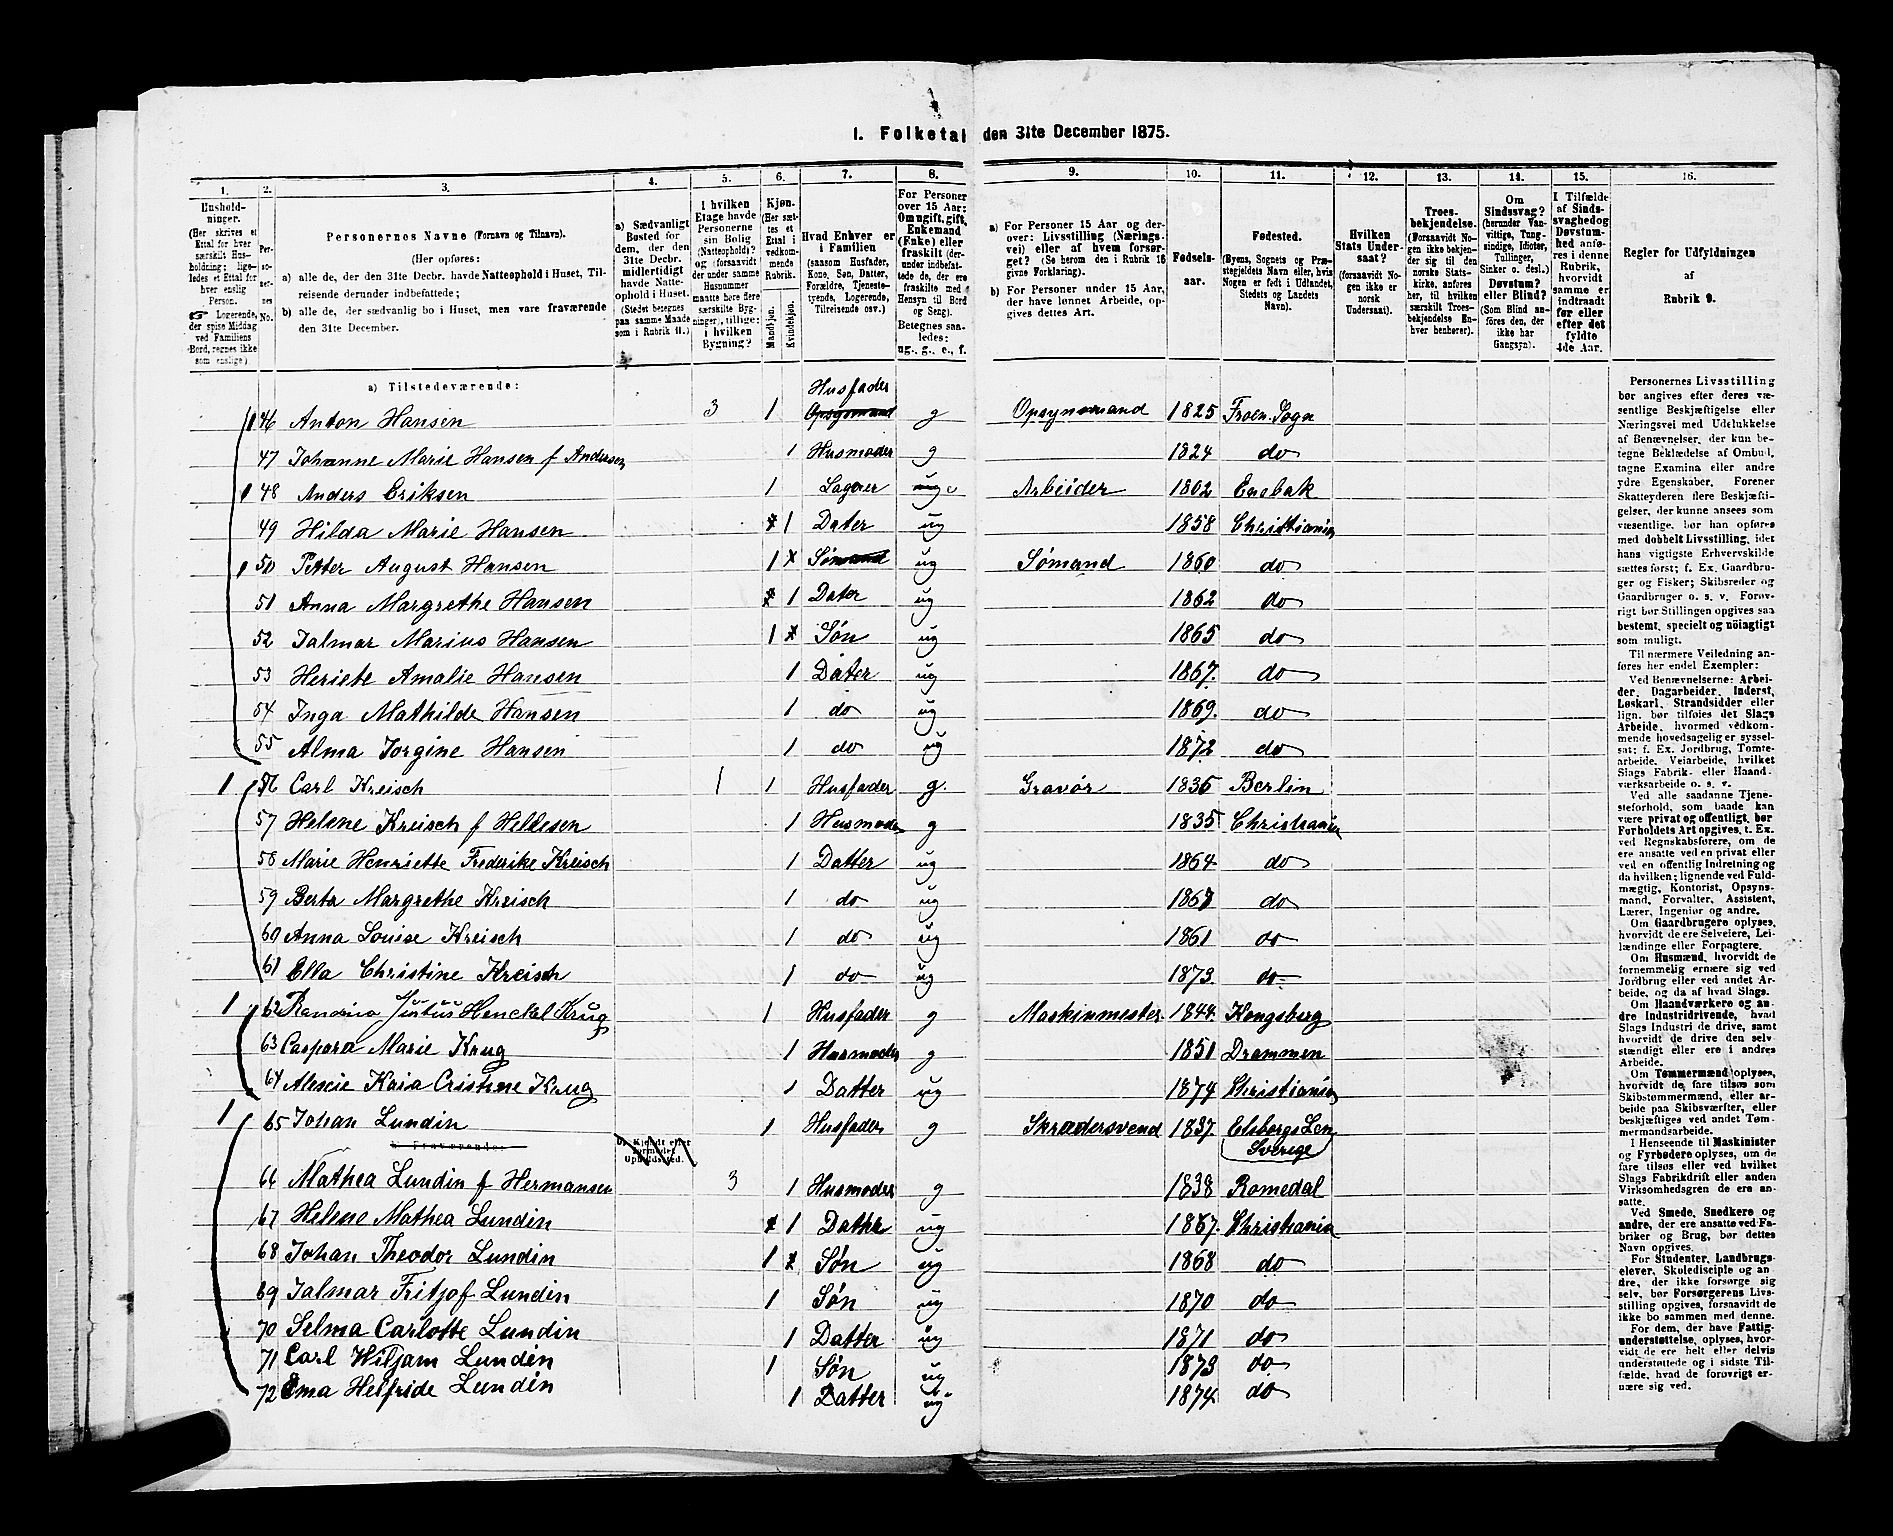 1. Folketal den 31te December 1875.
1. 2. 3. 4. 5. 6. 7. 8. 9. 10. 11. 12. 13. 14. 15. 16.
Husholdninger.
(Her skrives et
Ettal for hver
særskilt Husholdning;
ligeledes et Ettal for
hver enslig
Person.
Logerende,
der spise Middag
ved Familiens
Bord, regnes ikke
som enslige)
Personernes No.
Personernes Navne (Fornavn og Tilnavn).
(Her opføres:
a) alle de, der den 31te Decbr. havde Natteophold i Huset, Tilreisende derunder indbefattede;
b) alle de, der sædvanlig bo i Huset, men vare fraværende
den 31te December.
a) Sædvanligt
Bosted for
dem, der den
31te Decbr.
midlertidigt
havde Natteophold i Huset.
(Stedet betegnes
paa samme Maade
som i Rubrik 11.)
I hvilken
Etage havde
Personerne
sin Bolig
(Natteophold)?
og (forsaavidt
der under samme
Husnummer
maatte høre flere
særskilte Bygninger), tillige:
i hvilken
Bygning?
Kjøn.
(Her sættes et
Ettal i
vedkommende
Rubrik.
Mandkjøn.
Kvindekjøn.
Hvad Enhver er
i Familien
(saasom Husfader,
Kone, Søn, Datter,
Forældre, Tjenestetyende, Logerende,
Tilreisende osv.)
For Personer
over 15 Aar:
Om ugift, gift,
Enkemand
(Enke) eller
fraskilt (derunder indbefattede de, der ere
fraskilte med
Hensyn til Bord
og Seng).
Betegnes saaledes:
ug., g., e., f.
a) For Personer 15 Aar og derover: Livsstilling (Næringsvei) eller af hvem forsørget? (Se herom den i Rubrik 16
givne Forklaring).
b) For Personer under 15 Aar,
der have lønnet Arbeide, opgives dettes Art.
Fødselsaar.
Fødested.
(Byens, Sognets og Præstegjeldets Navn eller, hvis
Nogen er født i Udlandet,
Stedets og Landets
Navn).
Hvilken
Stats Undersaat?
(forsaavidt Nogen ikke er
norsk
Undersaat).
Troesbekjendelse.
(Forsaavidt Nogen ikke bekjender sig til den
norske Statskirke, anføres
her, til hvilken
særskilt Troesbekjendelse Enhver henhører).
Om
Sindssvag?
(herunder Vanvittige, Tungsindige, Idioter,
Tullinger,
Sinker o. desl.)
Døvstum?
eller Blind?
(Som Blind anføres den, der
ikke har
Gangsyn).
I Tilfælde
af Sindssvaghed og
Døvstumhed anføres i denne
Rubrik,
hvorvidt
samme er
indtraadt
før eller
efter det
fyldte
4de Aar.
Regler for Udfyldningen
af
Rubrik 9.
a) Tilstedeværende:
1 46 Anton Hansen 3 1 Husfader Opsynsmand g Opsynsmand 1825 Froen Sogn
47 Johanne Marie Hansen f Andersen 1 Husmoder g 1824 do
1 48 Anders Eriksen 1 Logerer ug e Arbeider 1802 Enebak
49 Hilda Marie Hansen 1 Dater ug 1858 Christiania
1 50 Petter August Hansen 1 Sømand ug Sømand 1860 do
51 Anna Margrethe Hansen 1 Dater ug 1862 do
52 Jalmar Marius Hansen 1 Søn ug 1865 do
53 Heriete Amalie Hansen 1 Dater ug 1867. do
54 Inga Mathilde Hansen 1 do ug 1869. do
55 Alma Jorgine Hansen 1 do ug 1872 do
1 56 Carl Kreisch 1 1 Husfader g. Gravør 1836 Berlin
57 Helene Kreisch f Heldesen 1 Husmoder g 1835 Christiania
58 Marie Henriette Frederike Kreisch 1 Datter ug 1864 do
59 Berta Margrethe Kreisch 1 do ug 1867 do
60 Anna Louise Kreisch 1 do ug 1861 do
61 Ella Christine Kreisch 1 do ug 1873 do
1 62 Justus Henckel Krug 1 Husfader g Maskinmester 1844. Kongsberg
63 Caspara Marie Krug 1 Husmoder g 1851 Drammen
64 Kaia Cristine Krug 1 Datter ug 1874 Christiania
1 65 Johan Lundin 1 Husfader g Skrædersvend 1837. Elsborgs Len
Sverige
b) Fraværende: b) Kjendt eller
formodet
Opholdssted.
66 Mathea Lundin f Hermansen 3 1 Husmoder g 1838 Romedal
67 Helene Mathea Lundin 1 Datter ug 1867. Christiania
68 Johan Theodor Lundin 1 Søn ug 1868 do
69 Jalmar Fritjof Lundin 1 Søn ug 1870 do
70 Selma Carlotte Lundin 1 Datter ug 1871 do
71 Carl Hiljam Lundin 1 Søn ug 1873 do
72 Ema Helfride Lundin 1 Datter ug 1874 do
Personernes Livsstilling
bør angives efter deres væsentlige Beskjæftigelse eller
Næringsvei med Udelukkelse
af Benævnelser, der kun betegne Beklædelse af Ombud,
tagne Examina eller andre
ydre Egenskaber. Forener
Skatteyderen flere Beskjæftigelser, der kunne ansees som
væsentlige, bør han opføres
med dobbelt Livsstilling, idet
hans vigtigste Erhvervskilde
sættes først; f. Ex. Gaardbruger og Fisker; Skibsreder og
Gaardbruger o. s. v. Forøvrigt bør Stillingen opgives saa
bestemt, specielt og nöiagtigt
som muligt.
Til nærmere Veiledning anføres her endel Exempler:
Ved Benævnelserne: Arbeider, Dagarbeider, Inderst,
Løskarl, Strandsidder eller
lign. bør tilføies det Slags
Arbeide, hvormed vedkommende hovedsagelig er sysselsat; f. Ex. Jordbrug, Tomtearbeide, Veiarbeide, hvilket
Slags Fabrik- eller Haandværksarbeide o. s. v.
Ved alle saadanne Tjenesteforhold, som baade kan
være privat og offentligt, bør
Forholdets Art opgives, t. Ex.
ved Regnskabsførere, om de
ere ansatte ved en privat eller
ved en offentlig Indretning og
da hvilken; lignende ved Fuldmægtig, Kontorist, Opsynsmand, Forvalter, Assistent,
Lærer, Ingeniør og andre.
Om Gaardbrugere oplyses,
hvorvidt de ere Selveiere, Leilændinge eller Forpagtere.
Om Husmænd, hvorvidt de
fornemmelig ernære sig ved
Jordbrug eller ved andet Arbeide, og da af hvad Slags.
Om Haandværkere og andre Industridrivende, hvad
Slags Industri de drive, samt
hvorvidt de drive den selvstændigt eller ere i andres
Arbeide.
Om Tømmermænd oplyses,
hvorvidt de fare tilsøs som
Skibstømmermænd, eller arbeide paa Skibsværfter, eller
beskjæftiges ved andet Tømmermandsarbeide.
I Henseende til Maskinister
og Fyrbødere oplyses, om de
fare tilsøs eller ved hvilket
Slags Fabrikdrift eller anden
Virksomhedsgren de ere ansatte.
Ved Smede, Snedkere og
andre, der ere ansatte ved Fabriker og Brug, bør dettes
Navn opgives.
For Studenter, Landbrugselever, Skoledisciple og andre, der ikke forsørge sig
selv, bør Forsørgerens Livsstilling opgives, forsaavidt de
ikke bo sammen med denne.
For dem, der have Fattigunderstøttelse, oplyses, hvorvidt de ere helt eller delvis
understøttede og i sidste Tilfælde, hvad de forøvrigt ernære sig ved.